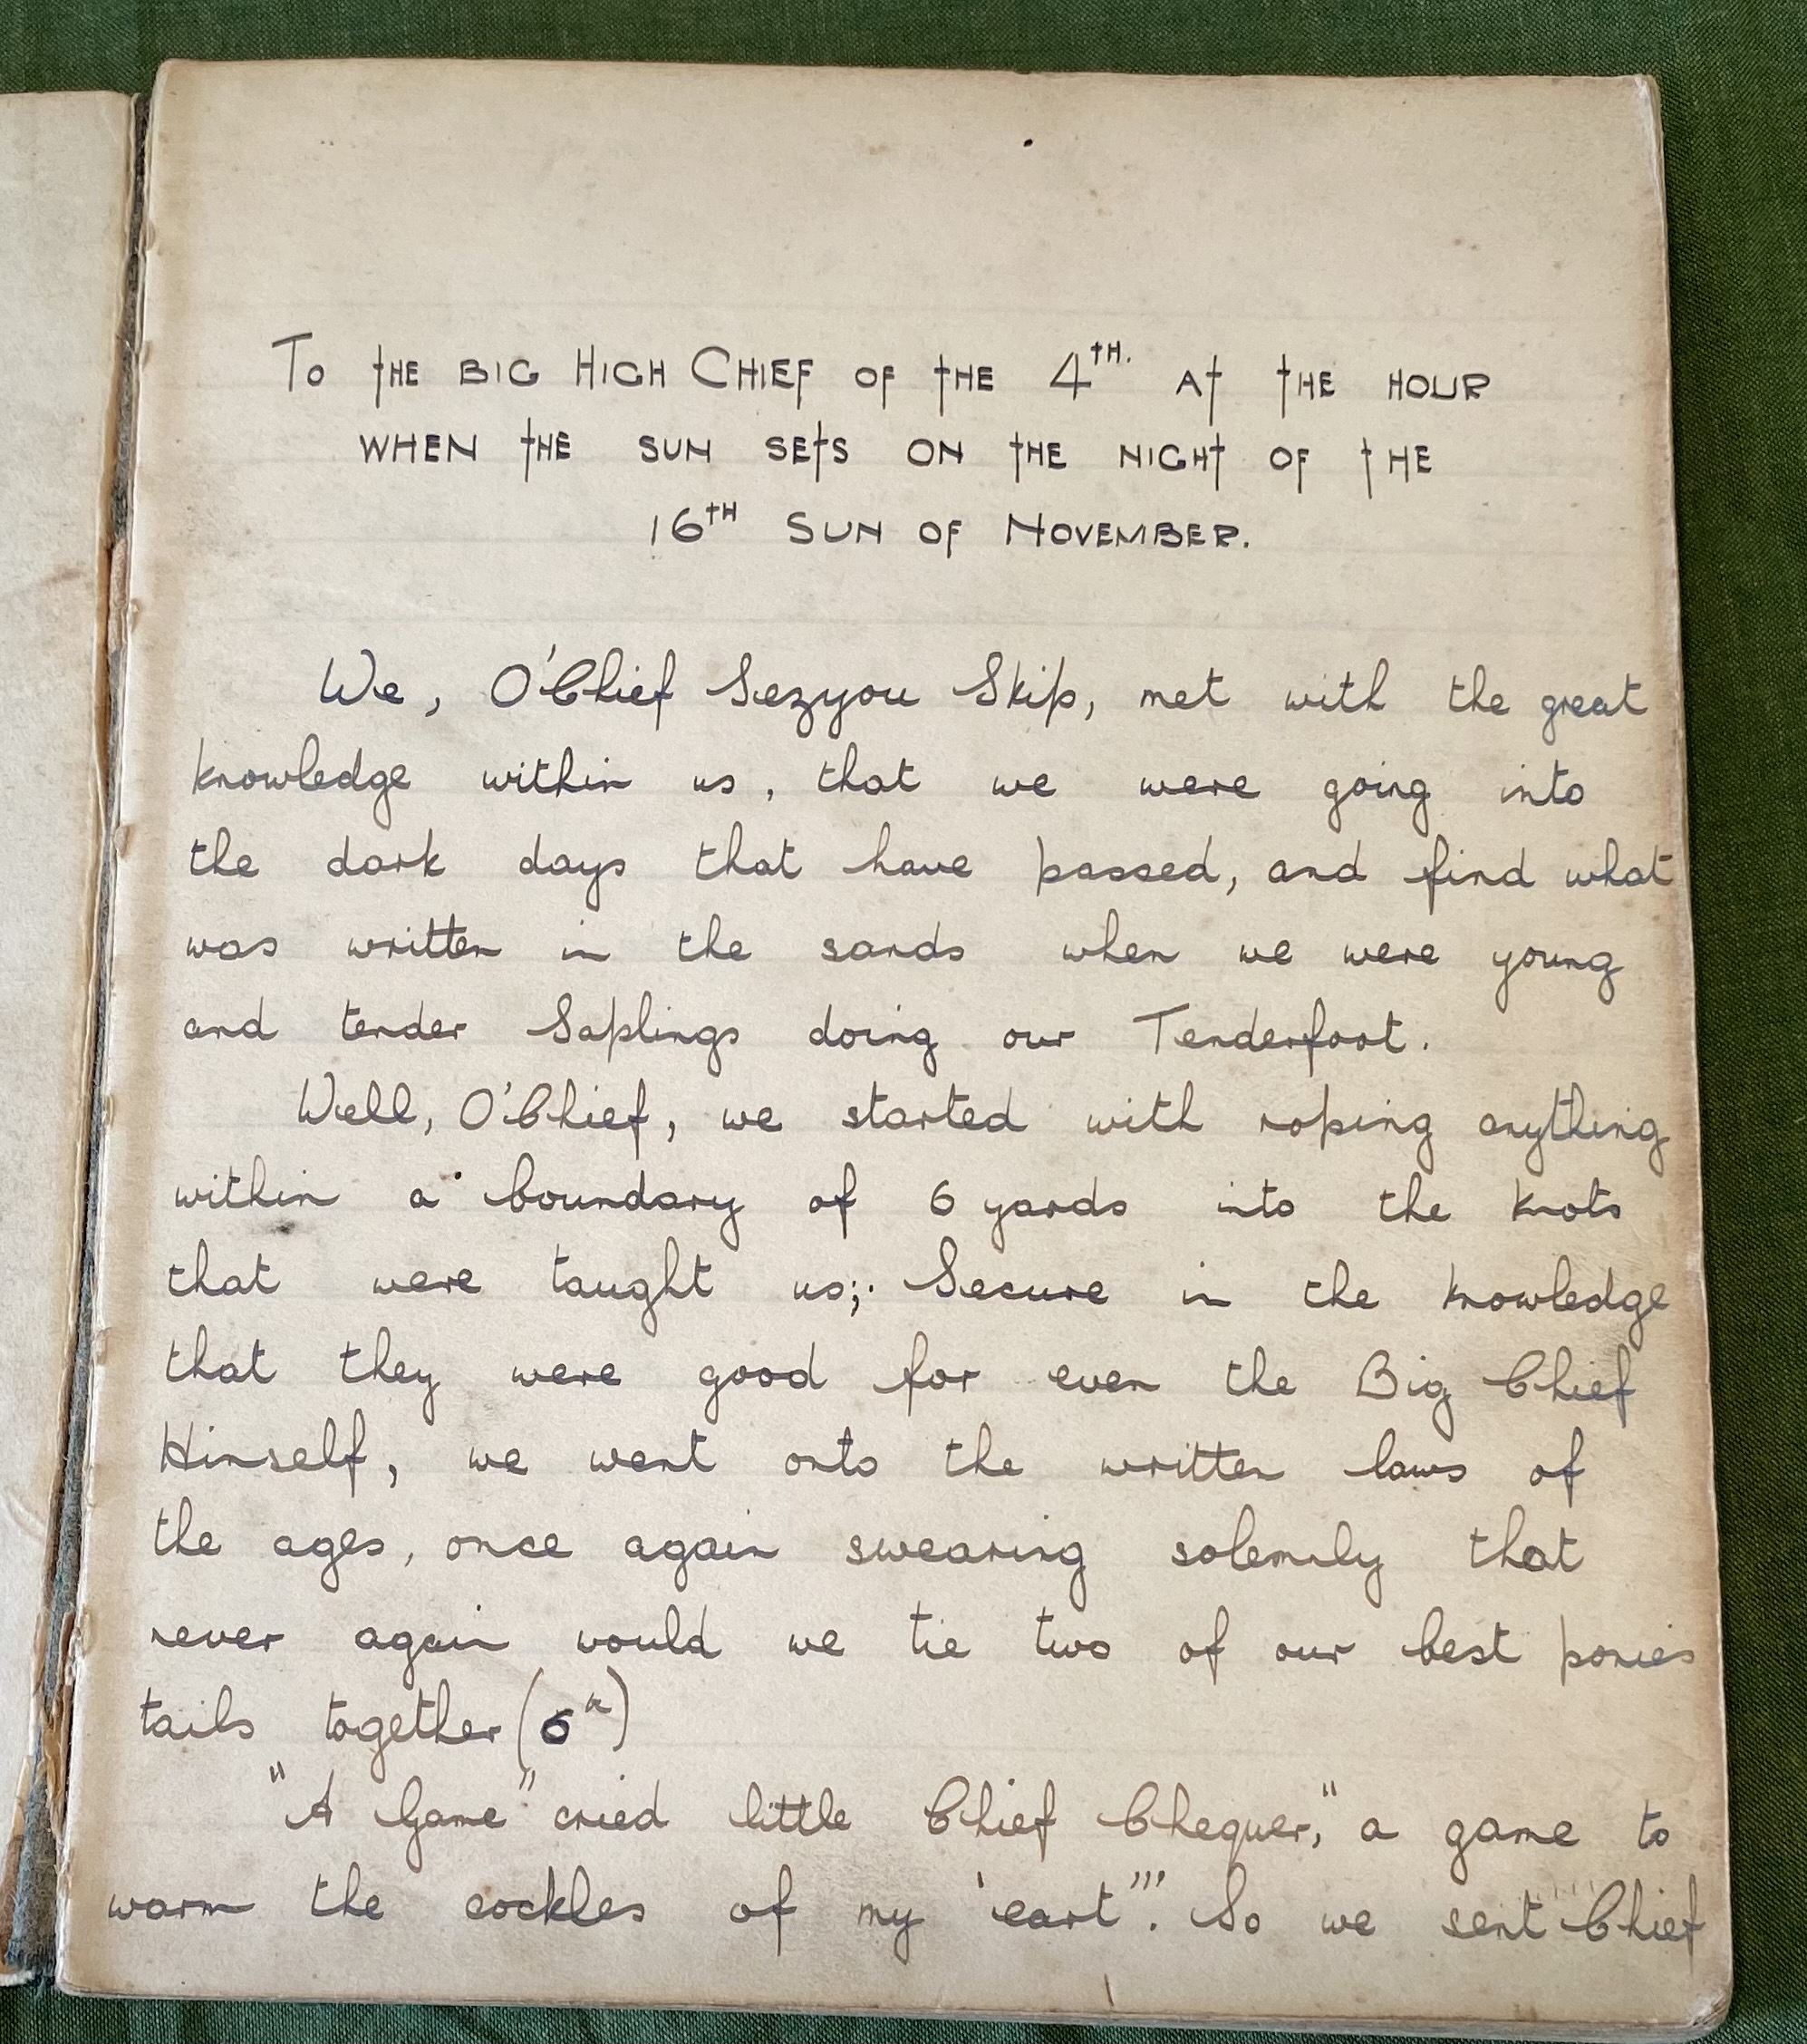 To the big High Chief of the 4th. at the hour
when the sun sets on the night of the
16th Sun of November.
We, O'Chief Sezyou Skip, met with the great
knowledge within us, that we were going into
the dark days that have passed, and find what
was written in the sands when we were young
and tender Saplings doing our Tenderfoot.
Well, O'Chief, we started with roping anything
within a boundary of 6 yards into the knots
that were taught us;. Secure in the knowledge
that they were good for even the Big Chief
Himself, we went onto the written laws of
the ages, once again swearing solemnly that
never again would we tie two of our best ponies
tails together (6a)
"A Game" cried little Chief Chequer, "a game to
warm the cockles of my 'eart'". So we sent Chief